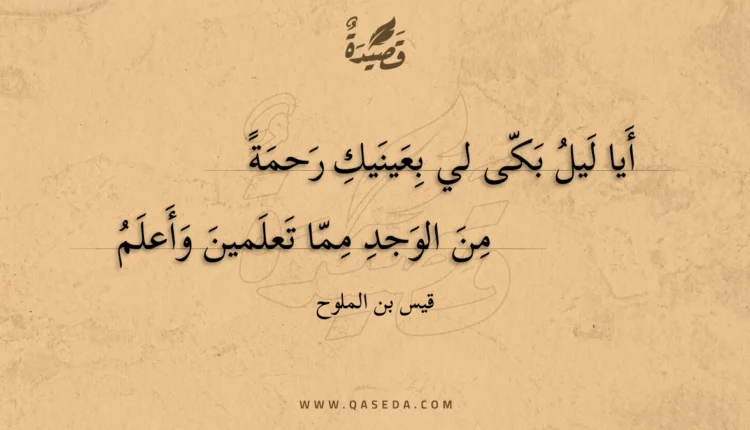 قَصِيْدَةٌ
أَيا لَيلُ بَكّى لي بِعَينَيكِ رَحمَةً
مِنَ الوَجدِ مِمّا تَعلَمينَ وَأَعلَمُ
قيس بن الملوح
WWW.QASEDA.COM